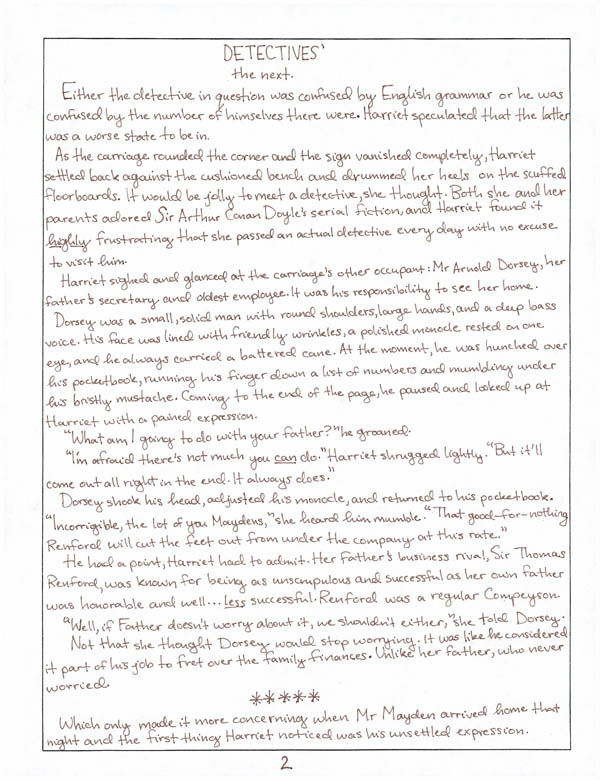 DETECTIVES'
the next.
Either the detective in question was confused by English grammar or he was
confused by the number of himselves there were. Harriet speculated that the latter
was a worse state to be in.
As the carriage rounded the corner and the sign vanished completely, Harriet
settled back against the cushioned bench and drummed her heels on the scuffed
floorboards. It would be jolly to meet a detective, she thought. Both she and her
parents adored Sir Arthur Conan Doyle's serial fiction, and Harriet found it
highly frustrating that she passed an actual detective every day with no excuse
to visit him.
Harriet sighed and glanced at the carriage's other occupant: Mr Arnold Dorsey, her
father's secretary and oldest employee. It was his responsibility to see her home.
Dorsey was a small, solid man with round shoulders, large hands, and a deep bass
voice. His face was lined with friendly wrinkles, a polished monocle rested on one
eye, and he always carried a battered cane. At the moment, he was hunched over
his pocketbook, running his finger down a list of numbers and mumbling under
his bristly mustache. Coming to the end of the page, he paused and looked up at
Harriet with a pained expression.
"What am I going to do with your father?" he groaned.
"I'm afraid there's not much you can do." Harriet shrugged lightly. "But it'll
come out all right in the end. It always does."
Dorsey shook his head, adjusted his monocle, and returned to his pocketbook.
"Incorrigible, the lot of you Maydens," she heard him mumble. "That good-for-nothing
Renford will cut the feet out from under the company at this rate."
He had a point, Harriet had to admit. Her father's business rival, Sir Thomas
Renford, was known for being as unscrupulous and successful as her own father
was honorable and well... less successful. Renford was a regular Compeyson.
"Well, if Father doesn't worry about it, we shouldn't either," she told Dorsey.
Not that she thought Dorsey would stop worrying. It was like he considered
it part of his job to fret over the family finances. Unlike her father, who never
worried.
*****
Which only made it more concerning when Mr Mayden arrived home that
night and the first thing Harriet noticed was his unsettled expression.
2